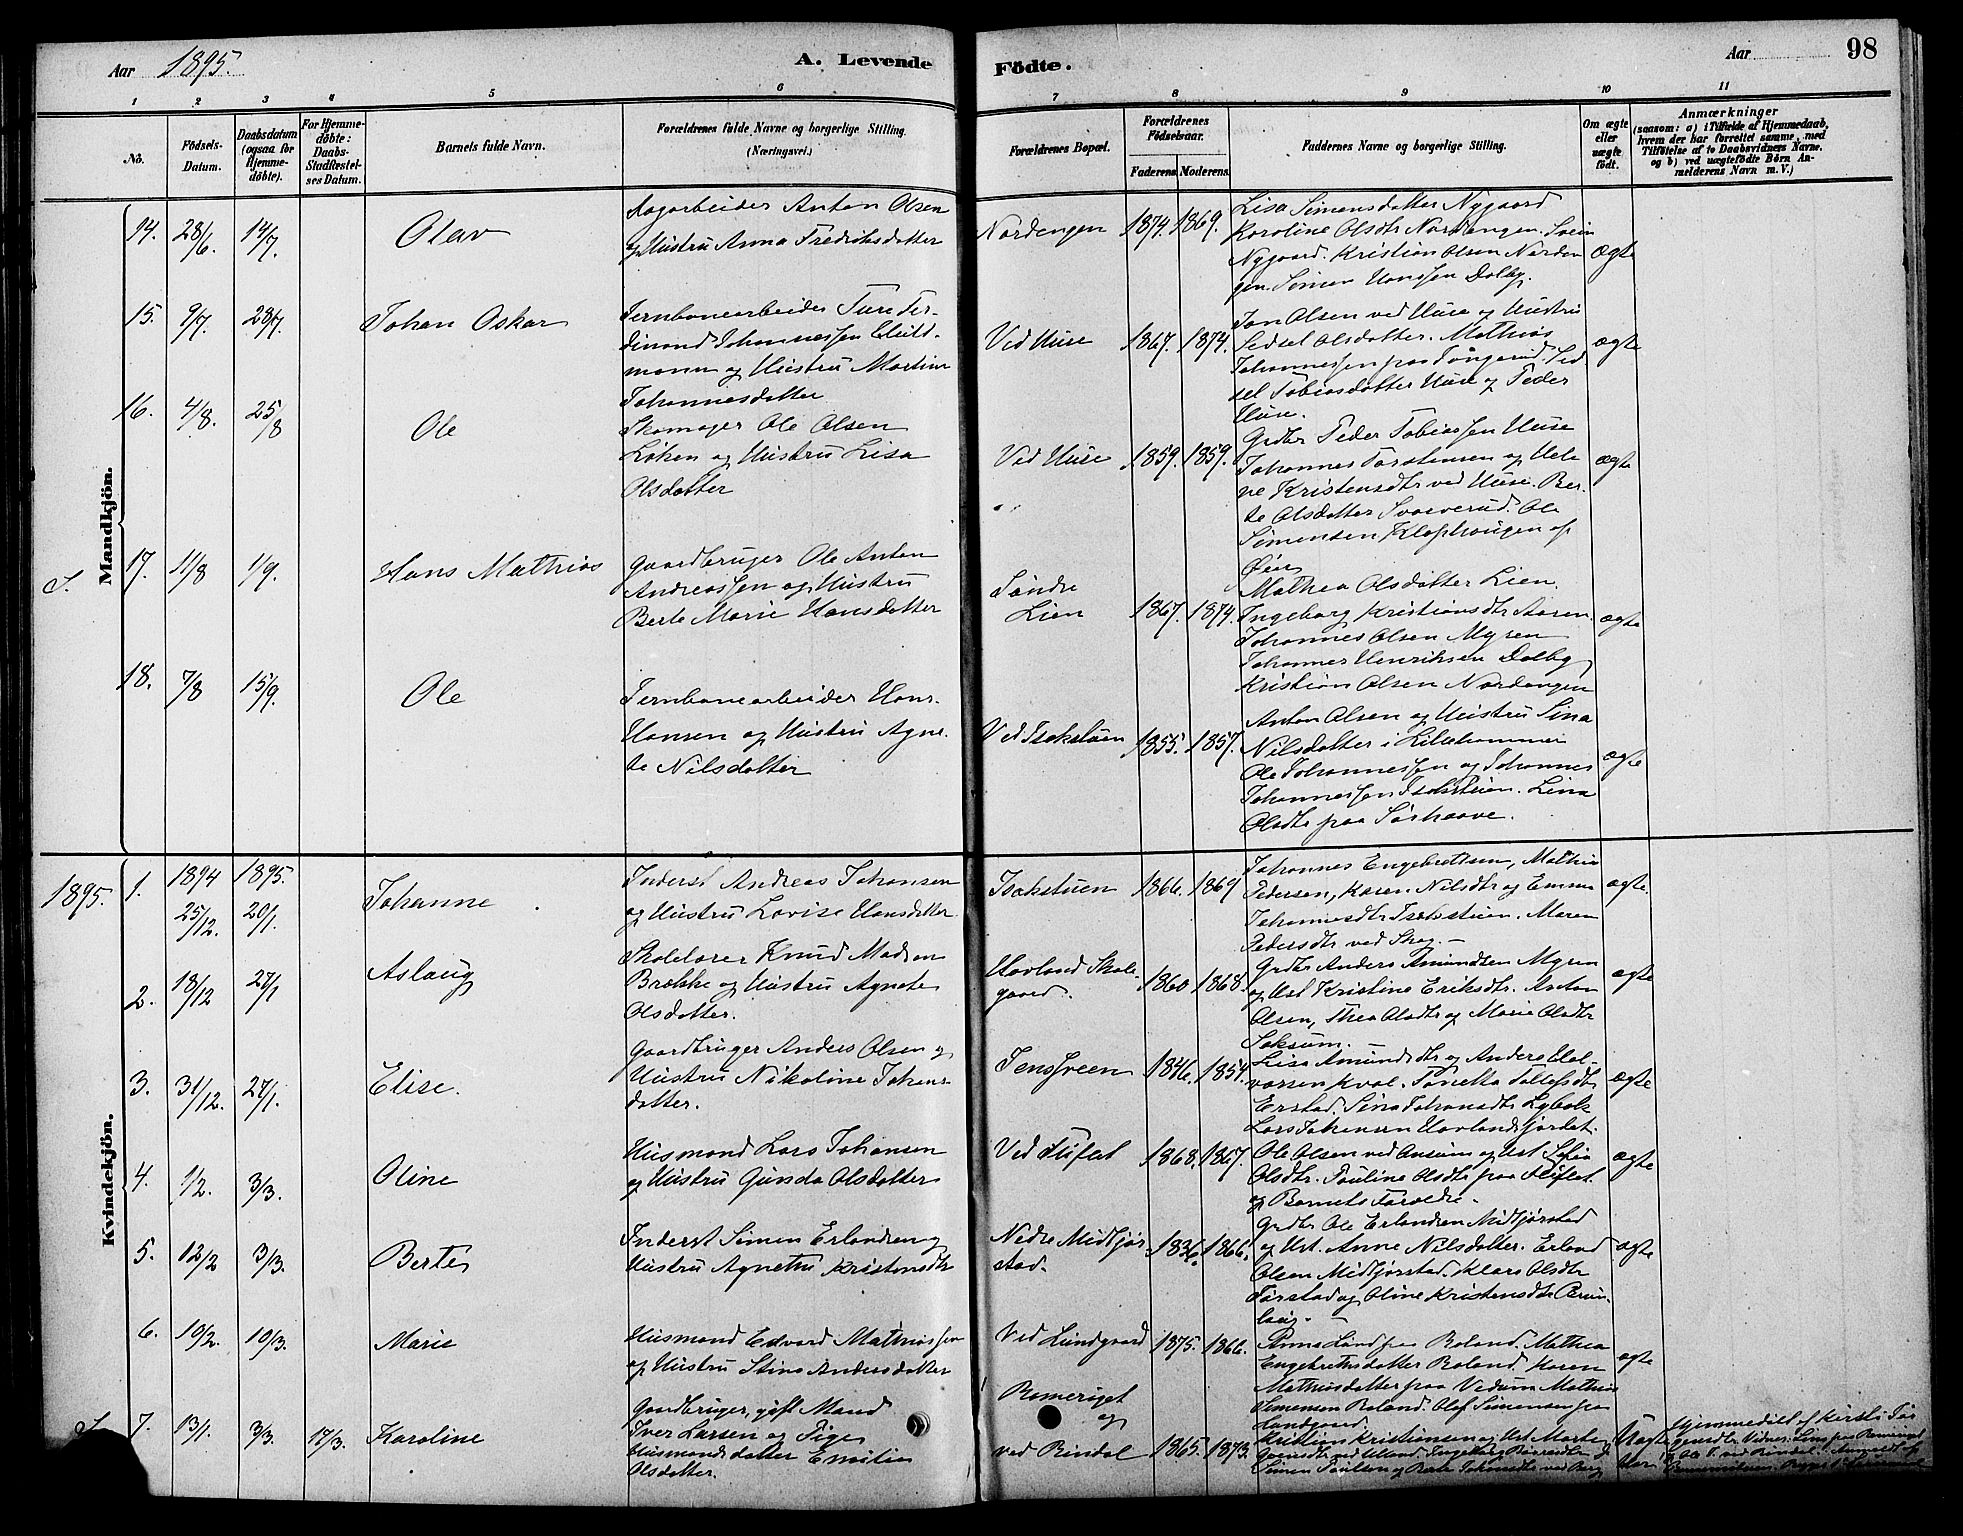 Aar 1895.
A. Levende
Födte.
Aar
98
1 2 3 4 5 6 7 8 9 10 11
No.
Födsels-
Datum.
Daabsdatum
(ogsaa for
Hjemme-
döbte).
For Hjemme-
döbte:
Daabs-
Stadfæstel-
ses Datum.
Barnets fulde Navn.
Forældrenes fulde Navne og borgerlige Stilling.
(Næringsvei.)
Forældrenes Bopæl.
Forældrenes
Födselsaar.
Faderens. Moderens.
Faddernes Navne og borgerlige Stilling.
Om ægte
eller
uægte
födt.
Anmærkninger
(saasom: a) i Tilfælde af Hjemmedaab,
hvem der har forrettet samme, med
Tilföielse af to Daabsvidners Navne,
og b) ved uægtefödte Börn An-
melderens Navn m. V.)
Mandkjön.
14. 28/6. 14/7. Olav
Sagarbeider Anton Olsen
og Hustru Anna Fredriksdatter
Nordengen 1874. 1869.
Lisa Simensdatter Nygaard
Karoline Olsdtr Nordengen. Svein
Nygaard. Kristian Olsen Norden
gen. Simen Hanssen Dalby.
ægte
15. 9/7. 28/7. Johan Oskar
Jernbanearbeider Ture Fer-
dinand Johannessen Hult-
mann og Hustru Martine
Johannesdatter
Ved Huse 1867. 1874.
Jon Olsen ved Huse og Hustru
Sidsel Olsdatter. Mathias
Johannessen paa Tingerud. Sid
sel Tobiasdatter Huse og Peder
Huse.
ægte
16. 4/8. 25/8 Ole
Skomager Ole Olsen
Løken og Hustru Lisa
Olsdatter
Ved Huse 1859. 1859.
Grdbr Peder Tobiassen Huse
Johannes Torstensen og Hele
ne Kristensdtr ved Huse. Ber-
te Olsdatter Svarverud. Ole
Simensen Klophaugen af
Øien
ægte
S.
17. 11/8 1/9. Hans Mathias
Gaardbruger Ole Anton
Andreassen og Hustru
Berte Marie Hansdatter
Søndre
Lien 1867. 1874.
Mathea Olsdatter Lien.
Ingeborg Kristiansdtr Aasen
Johannes Olsen Myren
Johannes Henriksen Dalby
Kristian Olsen Nordengen
ægte
18. 7/8 15/9. Ole
Jernbanearbeider Hans
Hansen og Hustru Agne-
te Nilsdatter
Ved Isakstuen 1855. 1857.
Anton Olsen og Hustru Sina
Nilsdatter i Lillehammer
Ole Johannessen og Johannes
Johannessen Isakstuen. Lina
Olsdtr paa Sørhaave.
ægte
Kvindekjön.
1895. 1. 1894 25/12. 1895. 20/1. Johanne
Inderst Andreas Johansen
og Hustru Lovise Hansdatter.
Isakstuen 1866. 1869
Johannes Engebretsen, Mathia
Pedersen, Karen Nilsdtr og Emma
Johannesdtr Isakstuen. Maren
Pedersdtr ved Skog. —
ægte.
2. 18/12 27/1 Aslaug
Skolelærer Knud Madsen
Brække og Hustru Agnete
Olsdatter.
Hovland Skole-
gaard. 1860 1868.
Grdbr Anders Amundsen Myren
og Hst Kristine Eriksdtr. Anton
Olsen, Thea Olsdtr og Marie Olsdtr
Saksum. —
ægte
3. 31/12. 27/1. Elise.
Gaardbruger Anders Olsen og
Hustru Nikoline Johans-
datter.
Jenssveen 1846. 1854.
Lisa Amundsdtr og Anders Hal-
varsen Kval. Tonetta Tollefsdtr
Erstad. Sina Johansdtr Lybek
Lars Johansen Hovlandsjordet.
ægte
4. 1/2. 3/3. Oline
Husmand Lars Johansen
og Hustru Gunda Olsdatter
Ved Flufat 1868. 1867.
Ole Olsen ved Ansum og Hst Sofie
Olsdtr. Pauline Olsdtr paa Flufat
og Barnets Forældre.
ægte
5. 12/2 3/3. Berte
Inderst Simen Erlandsen og
Hustru Agnethe Kristensdtr
Nedre Midtjør
stad. 1836. 1866.
Grdbr Ole Erlandsen Midtjørstad
og Hst. Anne Nilsdatter. Erland
Olsen Midtjørstad. Klara Olsdtr
Jørstad og Oline Kristensdtr Brun-
laug. —
ægte
6. 10/2. 10/3. Marie
Husmand Edvard Mathiassen
og Hustru Stina Andersdatter
Ved Lundgaard 1875. 1866.
Anne Lund paa Roland. Mathea
Engebretsdatter Roland. Karen
Mathiasdatter paa Vedum. Mathias
Simensen Roland. Olof Simensen paa
Lundgaard
ægte
7. 13/1. 3/3. 17/3. Karoline
Gaardbruger, gift Mand
Iver Larsen og Pige
Husmandsdatter Emilie
Olsdatter.
Romeriget
og
ved Rindal 1865. 1873.
Kristian Kristiansen og Hst Marte
Simen Poulsen og Berte Johansdtr ved Berg
Uægte
Hjemmedøbt af Kirsti Tør